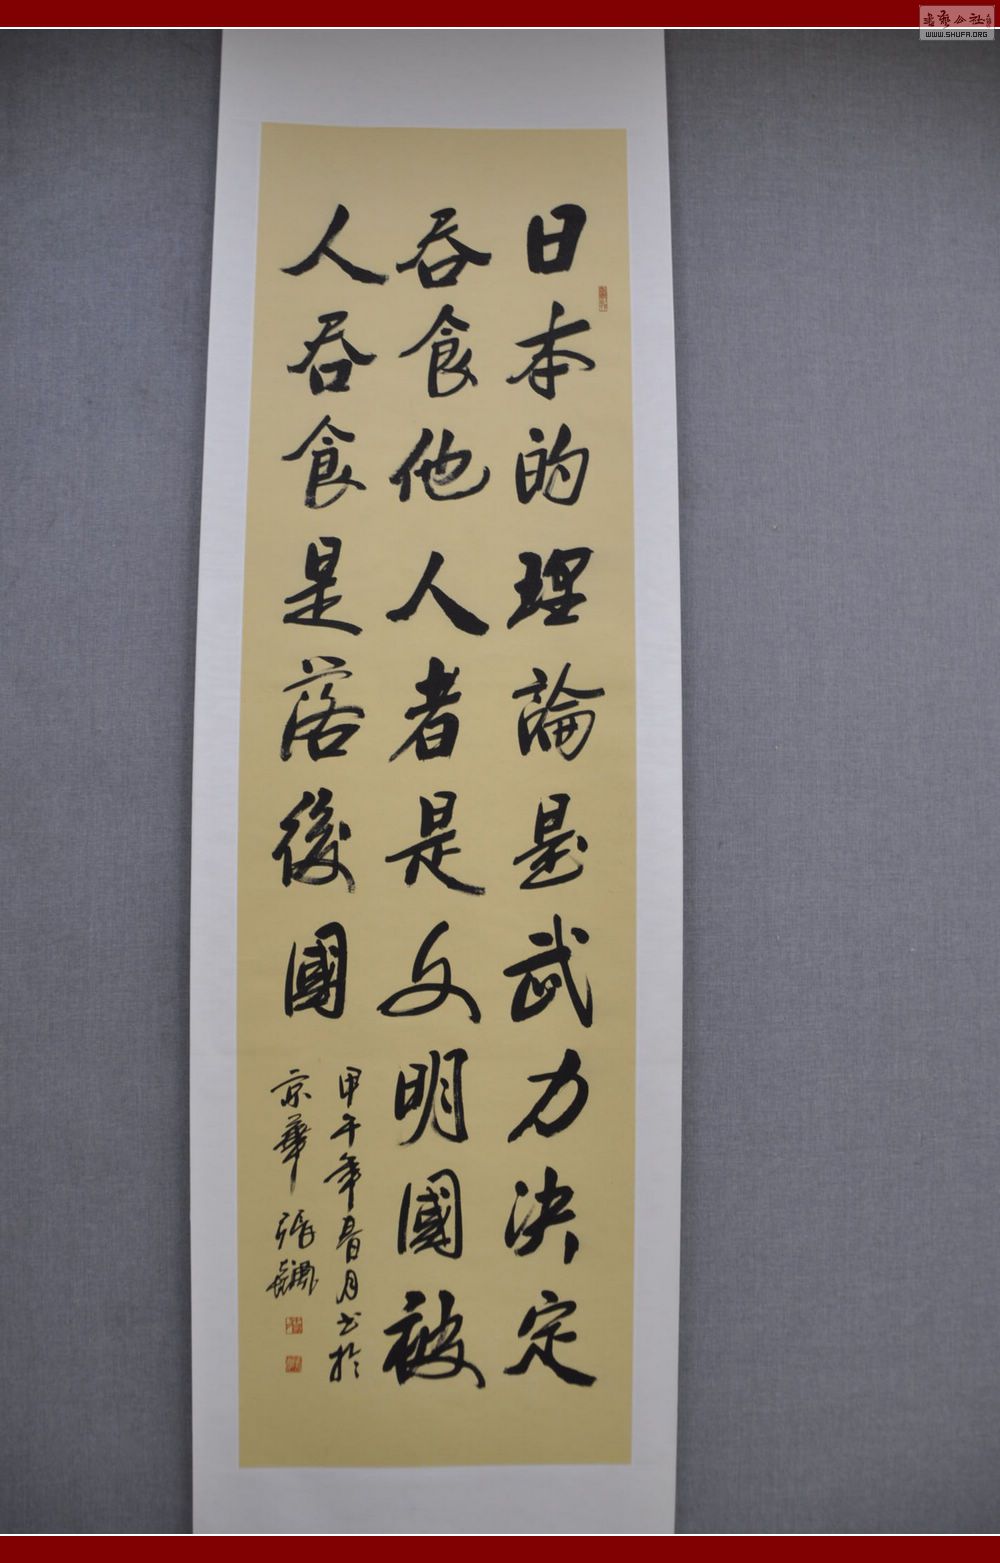 日本的理論是武力決定
吞食他人者是文明國被
人吞食是落後國
甲午年春月书於
京華 張飆
WWW.SHUFA.ORG